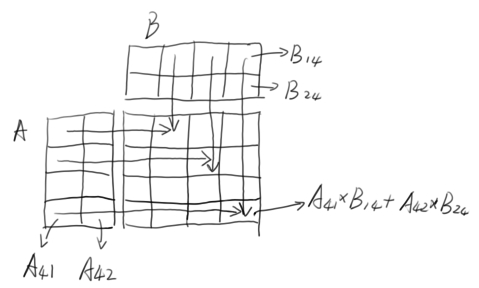 B
B14
B24
A
A41×B14+A42×B24
A41 A42